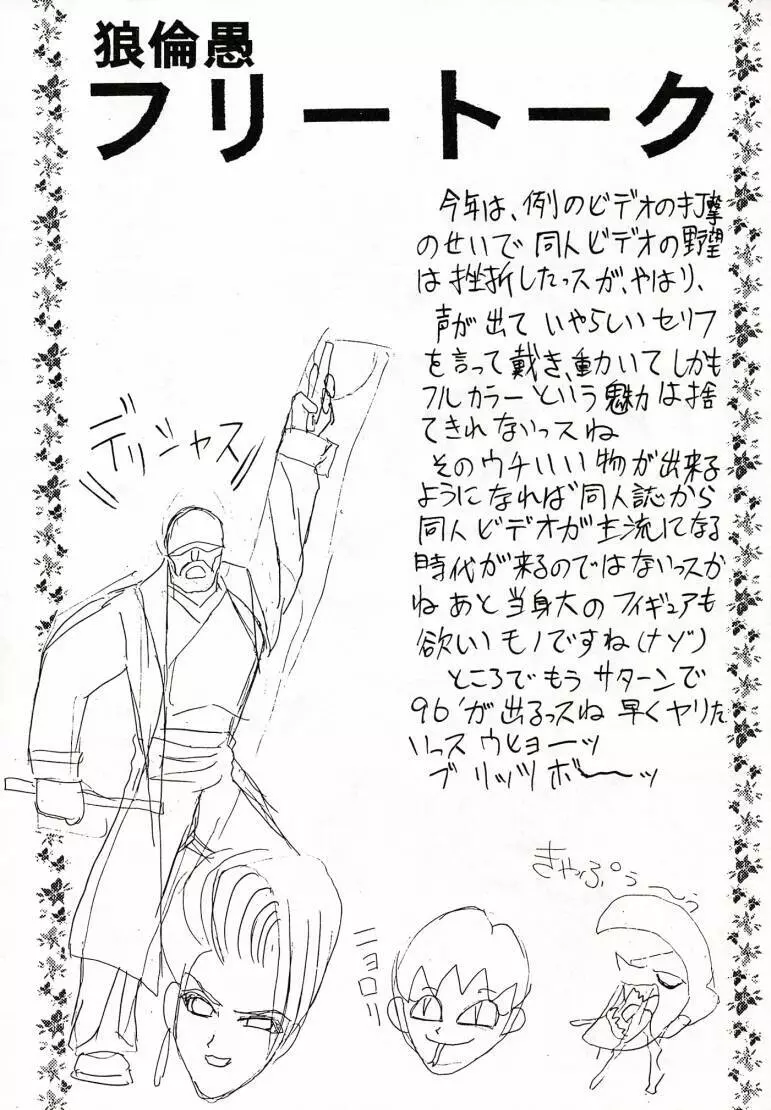 狼倫愚
フリートーク
今年は、例のビデオの打撃
のせいで同人ビデオの野望
は挫折したっスが、やはり、
声が出ていやらしいセリフ
を言って戴き、動いてしかも
フルカラーという魅力は捨
てきれないっスね
そのウチいい物が出来る
ようになれば同人誌から
同人ビデオが主流になる
時代が来るのではないっスか
ねあと当身大のフィギュアも
欲しいモノですね(ナゾ)
ところでもうサターンで
96'が出るっスね早くヤリた
いっスウヒョーッ
ブリッツボーーッ
デリシャス
ニョロリ
きゃぷぅ〜う